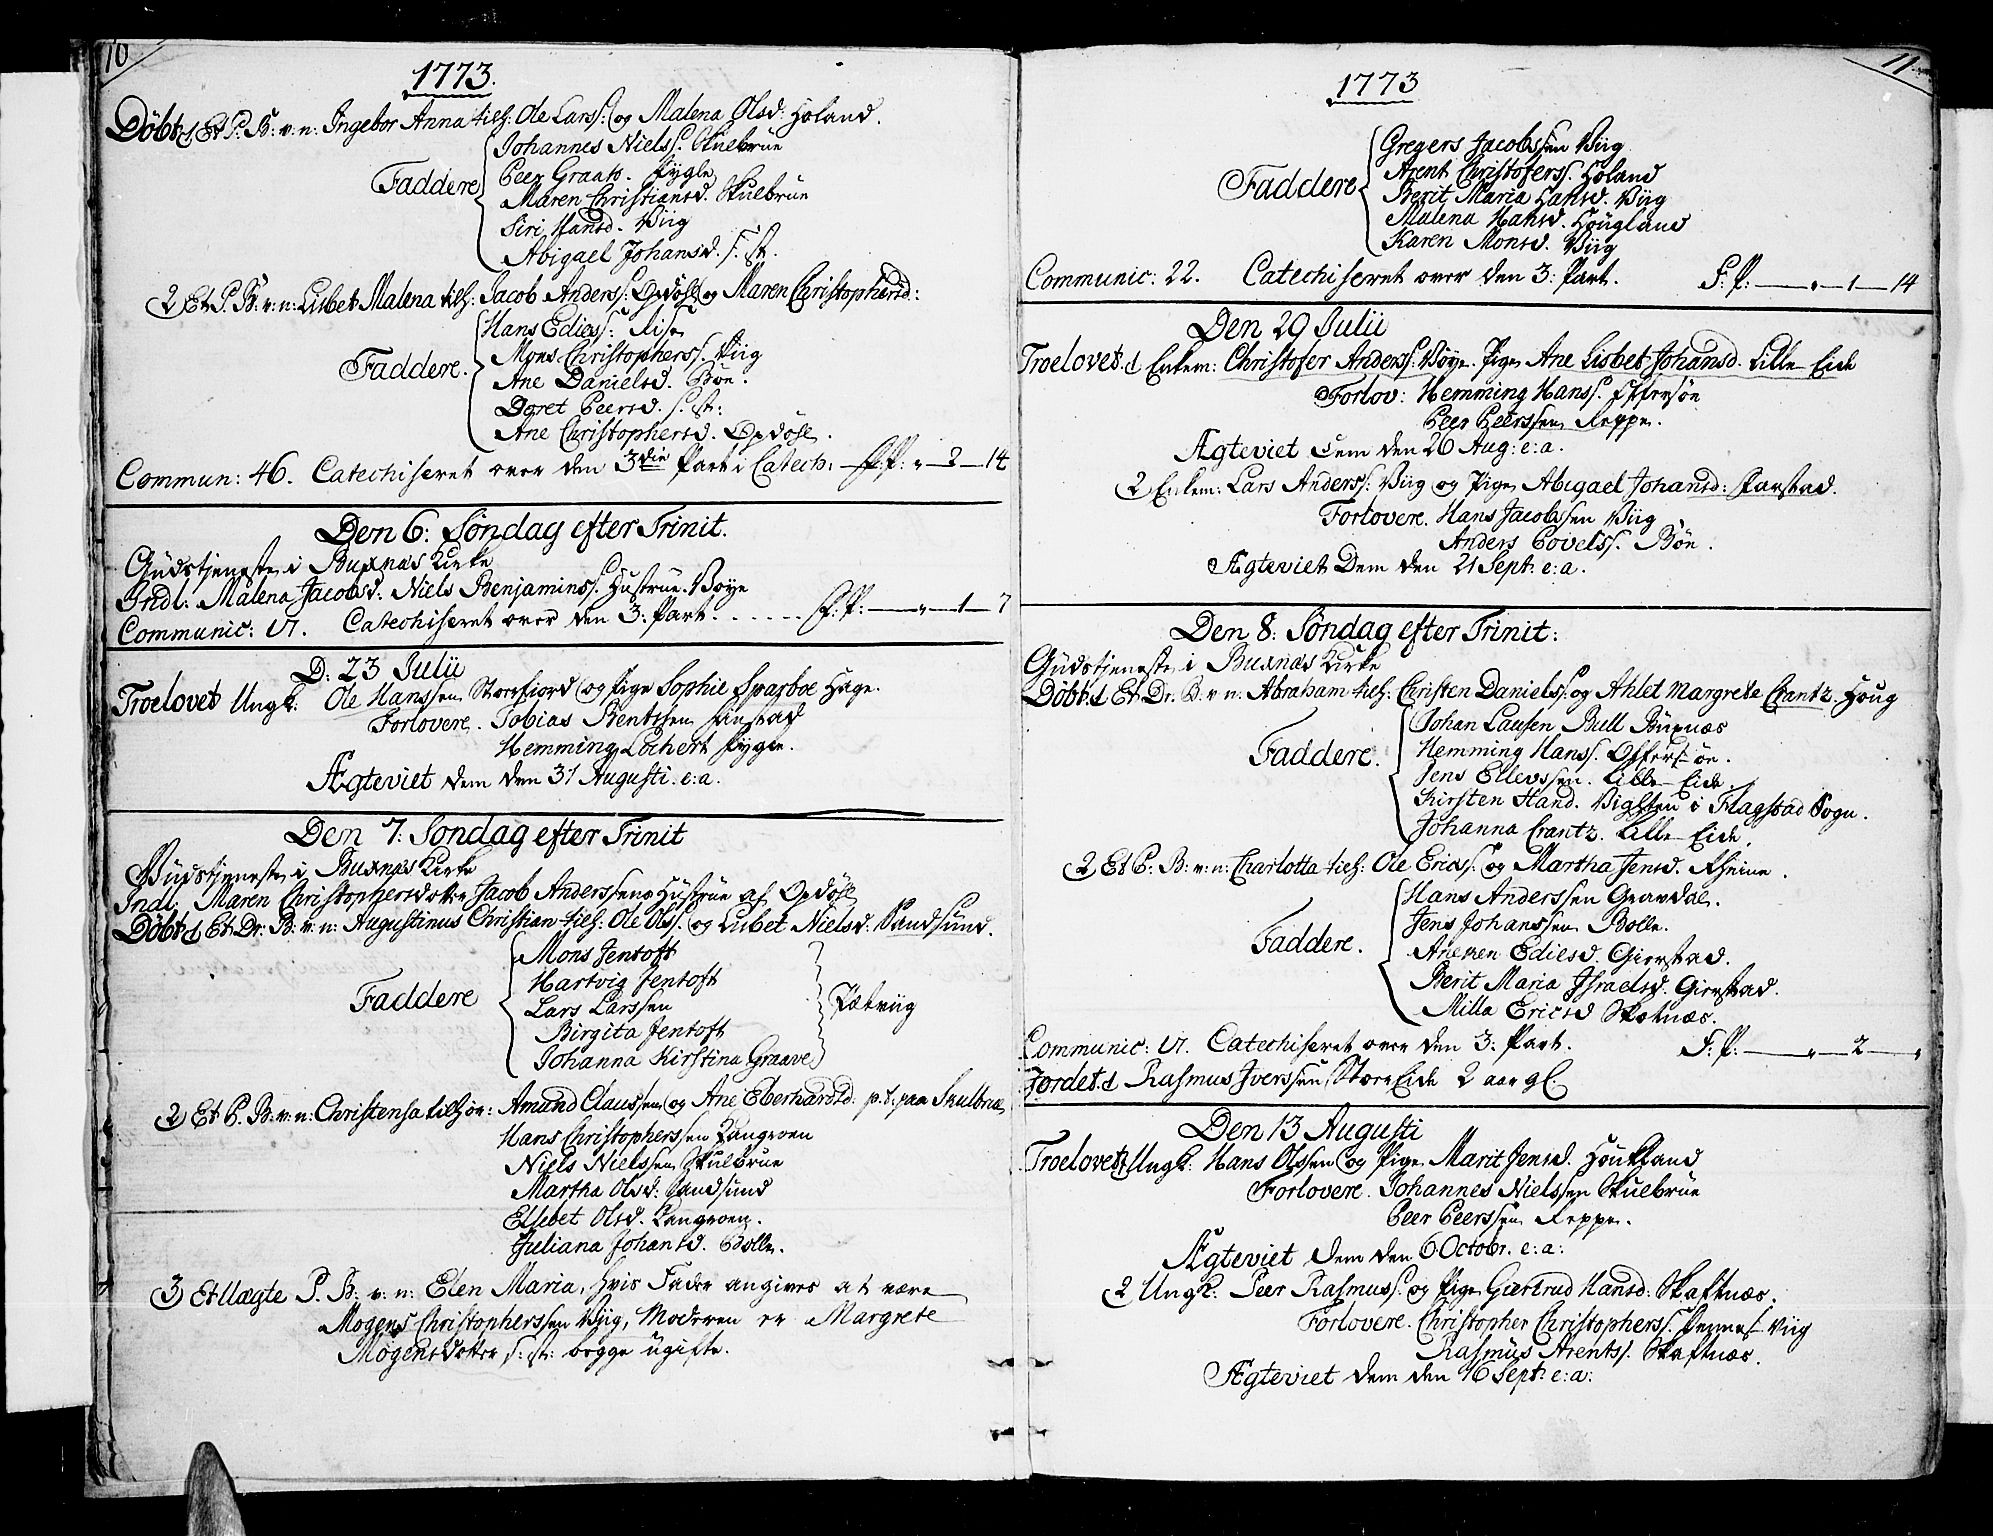 10
1773.
Döbt 1 Et P. B: v: n: Ingebor Anna tilh: Ole Larss: og Malena Olsd: Holand.
Johannes Nielss. Skulbrue
Faddere Peer Graatz. Pygle
Maren Christiansd. Skulbrue
Siri Hansd. Viig
Abigael Johansd. s. st.
2 Et P. B: v: n: Lisbet Malena tilh: Jacob Anderss: Opdöhl og Maren Christophersd:
Hans Ediess: Rise
Mons Christopherss. Viig
Faddere. Ane Danielsd. Böe.
Doret Peersd. s. st:
Ane Christophersd. Opdöhl.
Commun: 46. Catechiseret over den 3die Part i Catech: F: P: „ 2 — 14
Den 6: Söndag efter Trinit.
Gudstjeneste i Buxnæs Kirke
Indl: Malena Jacobsd: Niels Benjaminss. Hustrue. Voje
Communic: 17. Catechiseret over den 3: Part. . . . . . . F: P: — „ — 1 — 7
D: 23 Julii
Troelovet Ungk: Ole Hanssen Storfiord og Pige Sophie Sparboe Hage.
Forlovere. Tobias Bentssen Finstad
Hemming Lochert Pygle.
Ægteviet dem den 31 Augusti. e: a.
Den 7: Söndag efter Trinit
Gudstjeneste i Buxnæs Kirke
Indl: Maren Christophersdotter Jacob Anderssens Hustrue af Opdöhl
Döbt 1 Et Dr: B: v: n: Augustinus Christian tilh: Ole Olss. og Lisbet Nielsd: Sandsund.
Mons Jentoft
Hartvig Jentoft
Faddere Lars Larssen Petviig
Birgita Jentoft
Johanna Kirstina Graave
2 Et P. B: v: n: Christensa tilhör: Amund Claussen og Ane Eberhardtd: p. t. paa Skulbrue
Hans Christopherssen Langroen
Niels Nielssen Skulbrue
Martha Olsd: Sandsund
Elsebet Olsd. Langroen.
Juliana Johansd. Bolle.
3 Et Uægte P. B: v: n: Elen Maria, Hvis Fader angives at være
Mogens Christopherssen Viig, Moderen er Margrete
Mogensdotter s: st: begge ugifte.
11.
1773
Gregers Jacobssen Viig
Arent Christoferss. Holand
Faddere Berit Maria Hansd. Viig
Malena Hansd. Hougland
Karen Monsd. Viig
Communic: 22. Catechiseret over den 3: Part. F: P: — „ — 1 — 14
Den 29 Julii
Troelovet. 1 Enkem: Christofer Anderss. Voje. Pige Ane Lisbet Johansd. Lille Eide
Forlov: Hemming Hanss. Offersöe
Peer Peerssen Reppe.
Ægteviet Dem den 26 Aug: e: a.
2 Enkem: Lars Anderss: Viig og Pige Abigael Johansd: Farstad.
Forlovere. Hans Jacobssen Viig
Anders Povelss. Böe.
Ægteviet Dem den 21 Sept: e: a.
Den 8: Söndag efter Trinit:
Gudstjeneste i Buxnæs Kirke
Döbt. 1 Et Dr. B: v: n: Abraham tilh: Christen Danielss: og Ahlet Margrete Crantz. Houg
Johan Lausen Bull Buxnæs
Faddere. Hemming Hanss. Offersöe.
Jens Ellevssen. Lille Eide
Kirsten Hansd. Vigsten i Flagstad Sogn.
Johanna Crantz. Lille Eide.
2 Et P. B: v: n: Charlotta tilh: Ole Ericss: og Martha Jensd. Rheine.
Hans Anderssen Gravdal.
Jens Johanssen Bolle.
Faddere. Aneken Ediesd. Gierstad.
Berit Maria Israelsd. Gierstad.
Milla Ericsd Skotnæs.
Communic: 17. Catechiseret over den 3: Part. F: P: — „ — 2 — „
Jordet. 1 Rasmus Iverssen Store Eide 2 aar gl.
Den 13 Augusti
Troelovet 1 Ungk: Hans Olssen og Pige Marit Jensd. Houkland
Forlovere. Johannes Nielssen Skulbrue
Peer Peerssen Reppe.
Ægteviet dem den 6 Octobr. e: a:
2 Ungk: Peer Rasmuss. og Pige Giertrud Hansd: Skaftnæs.
Forlovere. Christopher Christopherss. Pennes-Viig
Rasmus Arentss. Skaftnæs.
Ægteviet dem den 16 Sept: e: a: